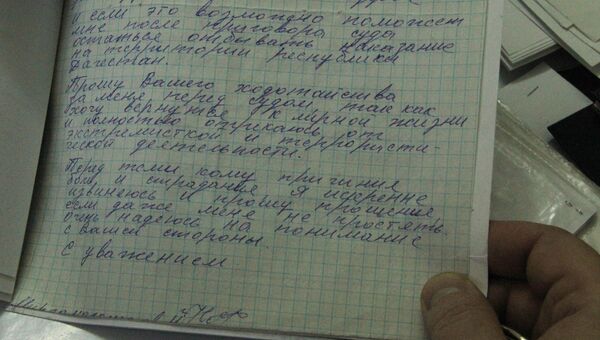 и если это возможно поможет
мне после приговора суда
остаться отбывать наказание
на территории республики
Дагестан.
Прошу Вашего ходотайства
за меня перед судом так как
хочу вернуться к мирной жизни
и полностью отрекаюсь от
экстремисткой и террористи-
ческой деятельности.
Перед теми кому причинил
боль и страдания я искренне
извиняюсь и прошу прощения
если даже меня не простять.
очень надеюсь на понимание
с Вашей стороны.
С уважением